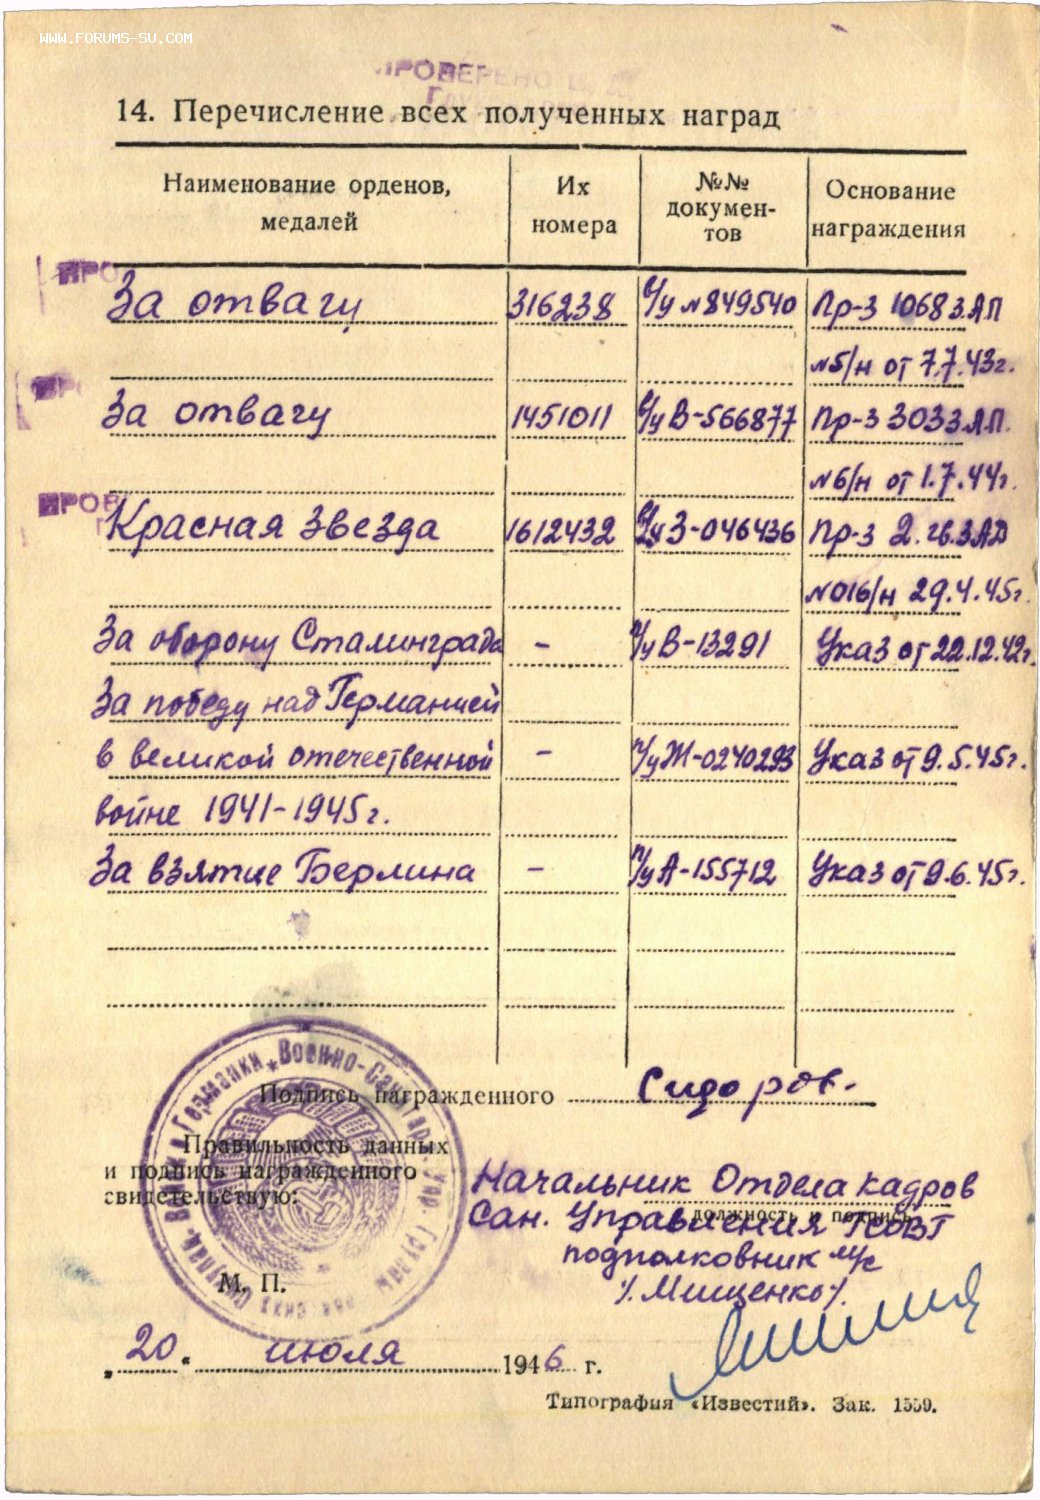 WWW.FORUMS-SU.COM
ПРОВЕРЕНО
14. Перечисление всех полученных наград
Наименование орденов, медалей
Их номера
№№ докумен-тов
Основание награждения
За отвагу 316238 в/у №849540 Пр-з 1068 З.А.П
№5/н от 7.7.43г.
За отвагу 1451011 в/у В-566877 Пр-з 3033.А.П.
№6/н от 1.7.44г.
ПРОВ
Красная звезда 1612432 З-046436 Пр-з 2.гв.ЗАД
№016/н 29.4.45г.
За оборону Сталинграда - п/у В-13291 Указ от 22.12.42г.
За победу над Германией
в великой отечественной - п/у Ж-0240293 Указ от 9.5.45г.
войне 1941-1945г.
За взятие Берлина - п/у А-155712 Указ от 9.6.45г.
Подпись награжденного Сидоров.
Правильность данных
и подпись награжденного
свидетельствую:
Начальник Отдела кадров
должность и подпись
Сан. Управления ГСОВГ
подполковник м/с
/. Мищенко /.
М. П.
„20" июля 1946 г.
Типография «Известий». Зак. 1559.